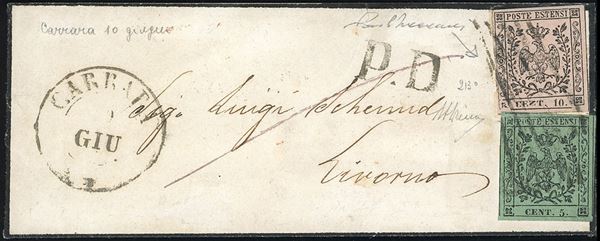 Carrara 10 giugno
POSTE ESTENSI
CENT. 10.
P.D
CARRARA
GIU
Sig. Luigi
Livorno
POSTE ESTENSI
CENT. 5.